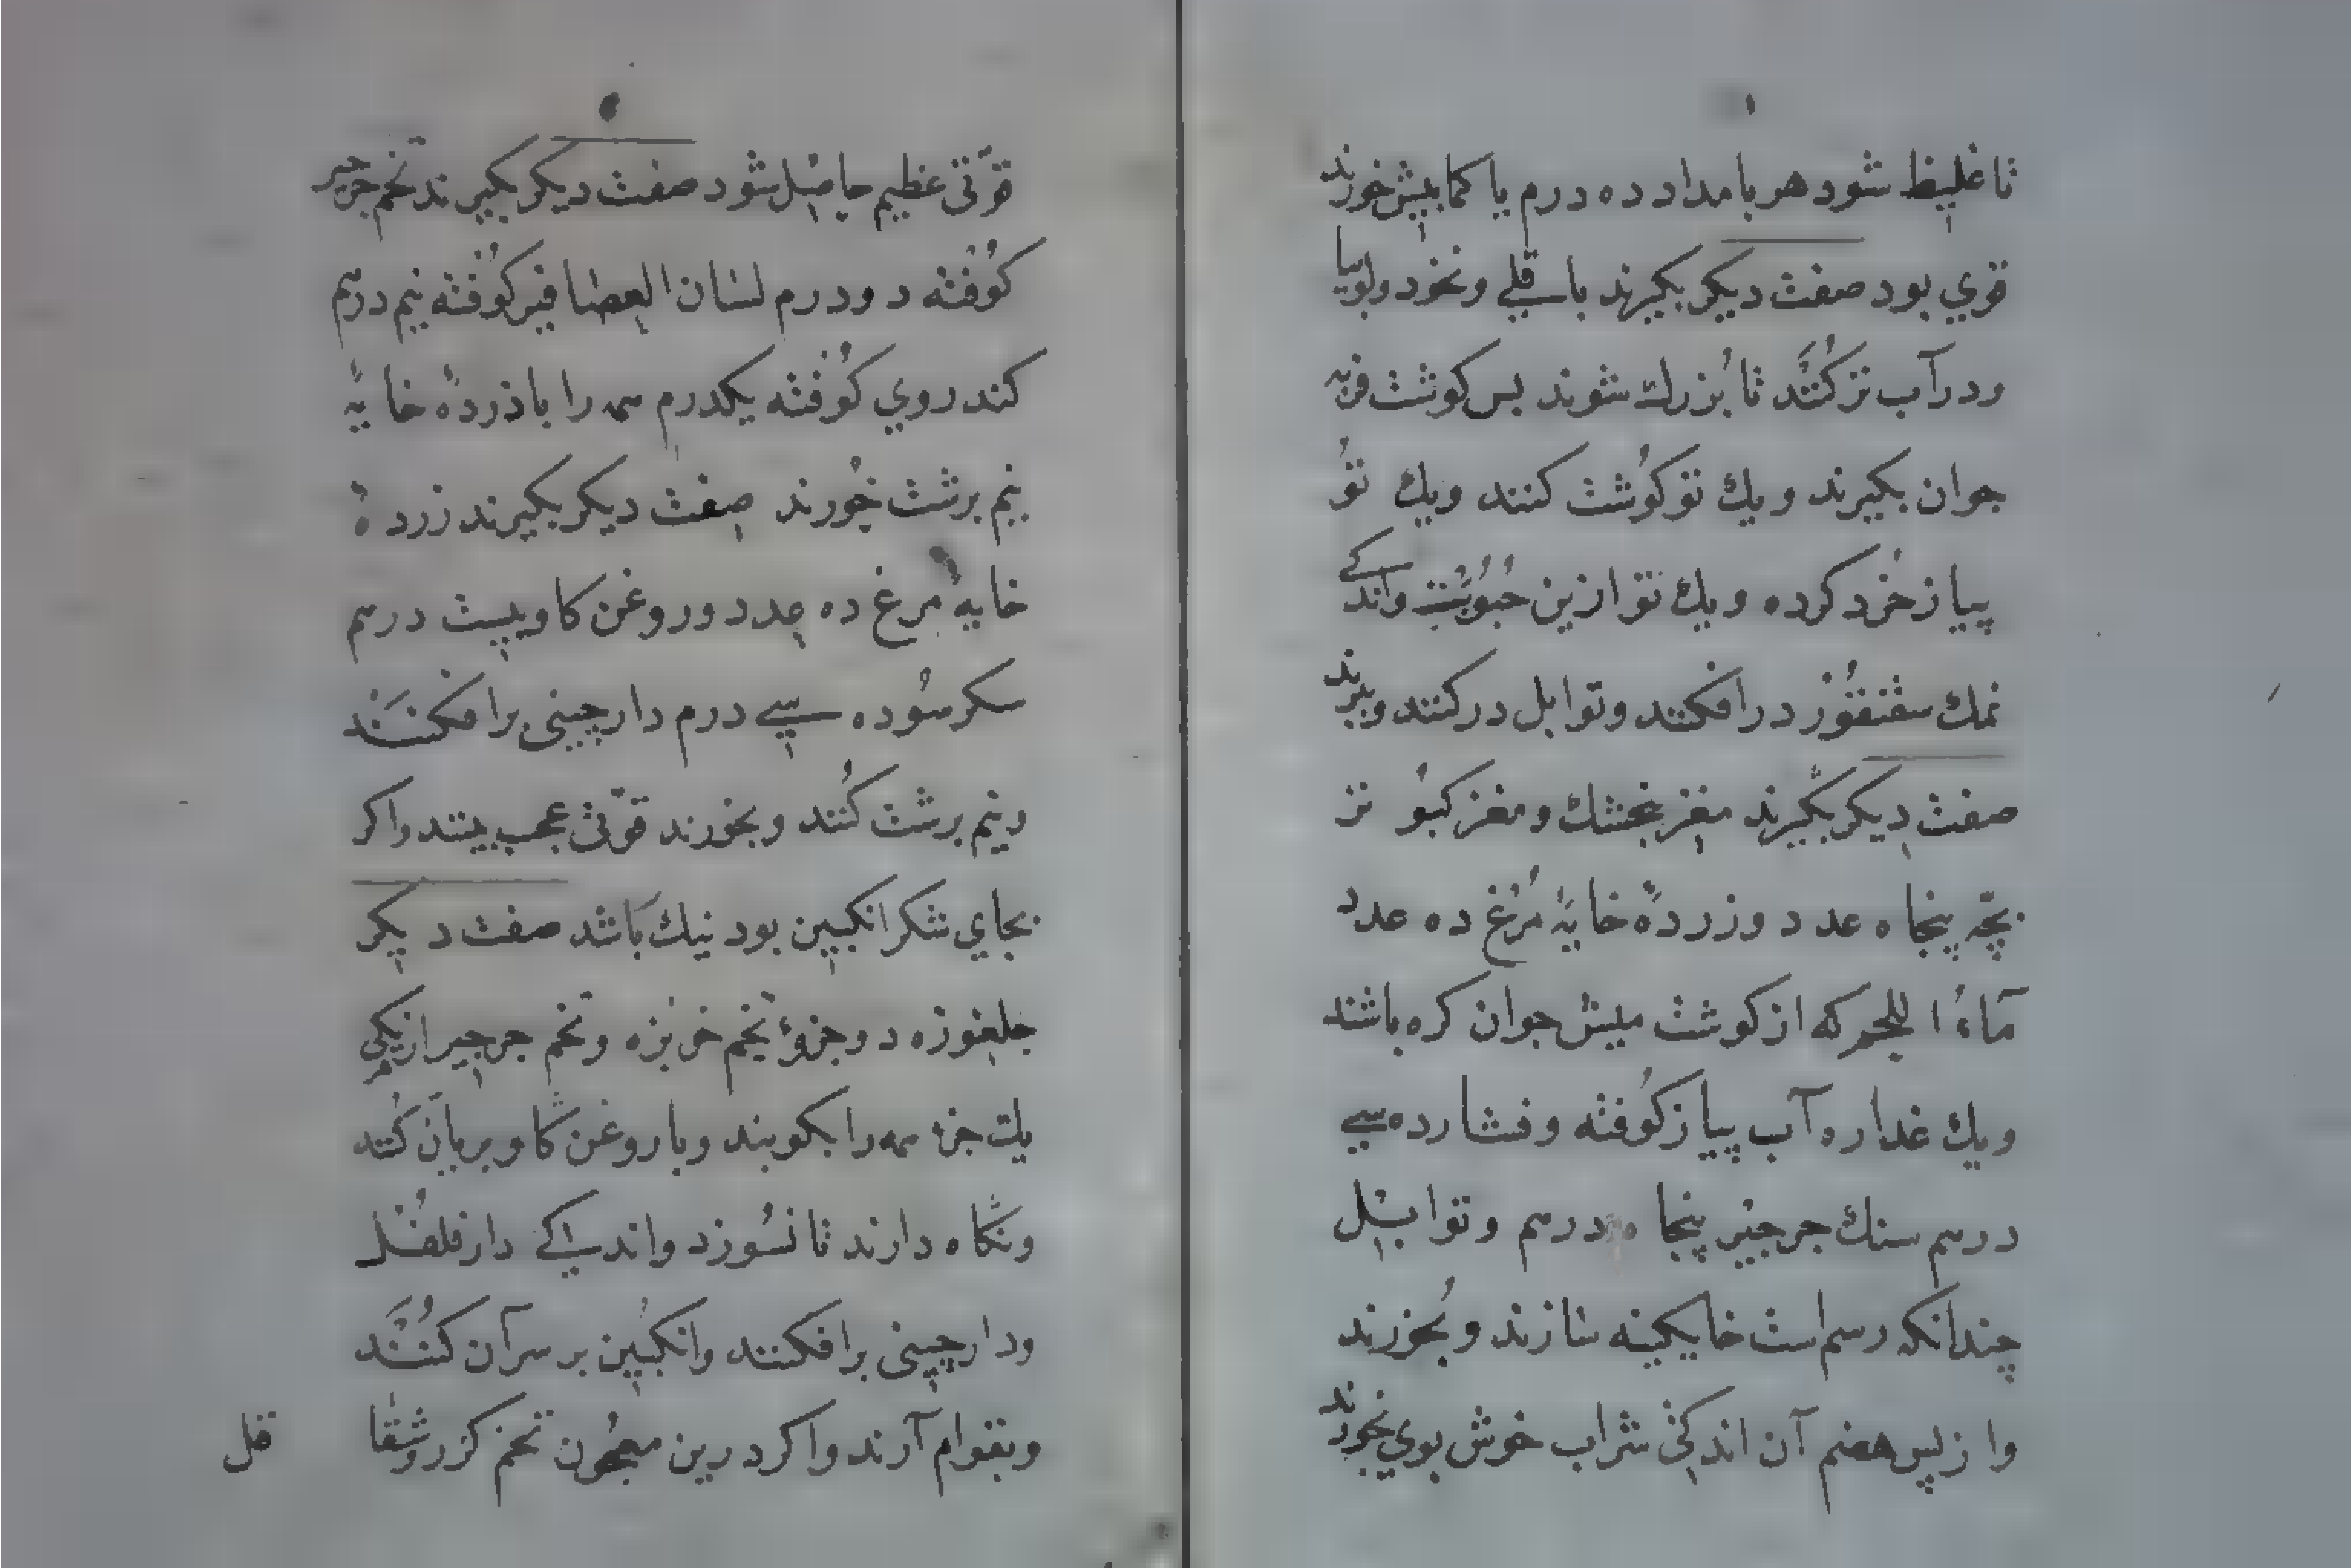 تا غلیظ شود هر بامداد ده درم یا کمابیش خورند
قوي بود صفت دیکر بکیرند باقلی ونخود ولوبیا
ودر آب تر کُنَند تا بُزرك شوند بس کوشت فربه
جوان بکیرند ویك تو کوُشت کنند ویك توُ
پیاز خُرد کرده ویك تو ازین حُبُوبُت واندکے
نمك سقنقوُر درافکنند وتوابل درکنند وببرند
صفت دیکر بکیرند مغز بنجشك ومغز کبوُتر
بچّه پنجاه عدد وزردهٔ خایهٔ مُرغ ده عدد
مَاءُ اللحم که از کوشت میش جوان کره باشند
ویك غداره آب پیاز کوُفته وفشارده سے
درم سنك جرجیر پنجاه درم وتوابل
چندانکه رسم است خایکینه سازند وبخورند
واز پس هضم آن اندکی شراب خوش بوي بخورند
قوّتی عظیم حاصل شود صفت دیکر بکیرند تخم جرجیر
کوُفته دودرم لسان العصافیر کوُفته نیم درم
کندروي کوُفته یکدرم همه را با ذردهٔ خایهٔ
نیم برشت خوُرند صفت دیکر بکیرند زردهٔ
خایهٔ مرغ ده عدد وروغن کاو بیست درم
سکر سوُده سے درم دارچینی برافکنَند
ونیم برشت کُنند وبخورند قوّتی عجب بینند واکر
بجاي شکر انکبین بود نیك باشد صفت دیکر
جلغوزه دوجزؤ تخم خربزه وتخم جرجیر از یکی
یك جزؤ همه را بکوبند وباروغن کاو بریان کُنند
ونکاه دارند تا نسوُزد واندکے دارفلفُل
ودارچینی برافکنند وانکبُین بر سر آن کُنَند
وبقوام آرند واکر درین معجوُن تخم کزر وشقا
قل